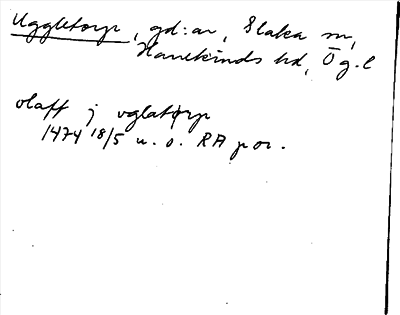 Uggletorp, gd:ar, Slaka sn,
Hanekinds hd, Ög.l
olaff j vglatorp
1474 18/5 u. o. RA por.